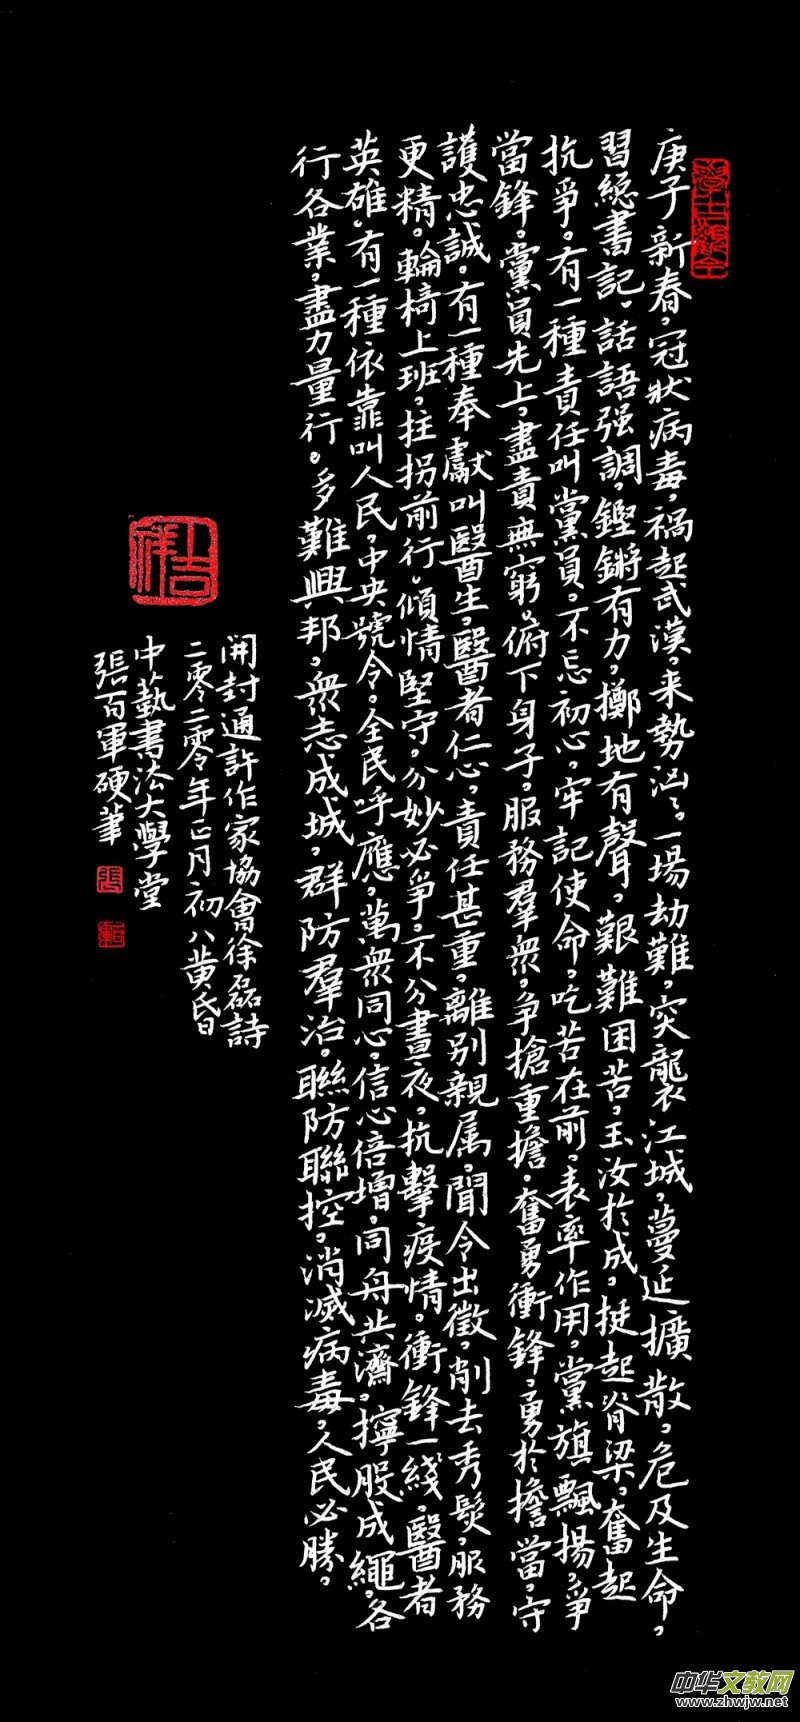 庚子新春，冠狀病毒，禍起武漢，来勢汹々。一場劫難，突襲江城，蔓延擴散，危及生命，
習總書記，話語强調，鏗鏘有力，擲地有聲，艱難困苦，玉汝於成，挺起脊梁，奮起
抗爭。有一種責任叫黨員，不忘初心，牢記使命，吃苦在前，表率作用，黨旗飄揚，爭
當鋒。黨員先上，盡責無窮。俯下身子，服務羣衆，争搶重擔，奮勇衝鋒，勇於擔當，守
護忠誠。有一種奉獻叫醫生，醫者仁心，責任甚重，離别親属，聞令出徵，削去秀髮，服務
更精。輪椅上班，拄拐前行。傾情堅守，分妙必爭，不分晝夜，抗擊疫情。衝鋒一綫，醫者
英雄。有一種依靠叫人民，中央號令。全民呼應，萬衆同心，信心倍增，同舟共濟，擰股成繩，各
行各業，盡力量行。多難興邦，衆志成城，群防羣治，聯防聯控，消滅病毒，人民必勝。
開封通許作家協會徐磊詩
二零二零年正月初八黄昏
中藝書法大學堂
張百軍硬筆
吉祥
張
中华文教网
www.zhwjw.net